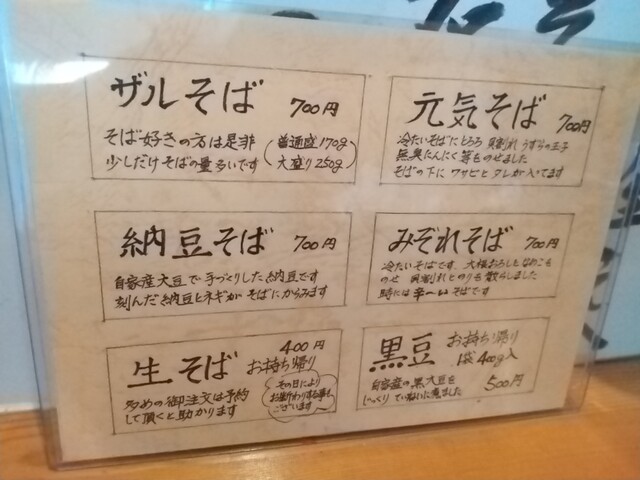 ザルそば 700円
そば好きの方は是非
少しだけそばの量多いです
(普通盛170g
大盛り250g)
元気そば 700円
冷たいそばにとろろ 貝割れ うずらの玉子
無臭にんにく等をのせました
そばの下に ワサビとタレが入ってます
納豆そば 700円
自家産大豆で手づくりした納豆です
刻んだ納豆とネギが そばにからみます
みぞれそば 700円
冷たいそばです、大根おろしとなめこを
のせ 貝割れとのりを散らしました
時には辛〜いそばです
生そば 400円
お持ち帰り
多めの御注文は予約
して頂くと助かります
その日により
お断わりする事も
ございます
黒豆 お持ち帰り
1袋400g入
自家産の黒大豆を
じっくり ていねいに煮ました
500円